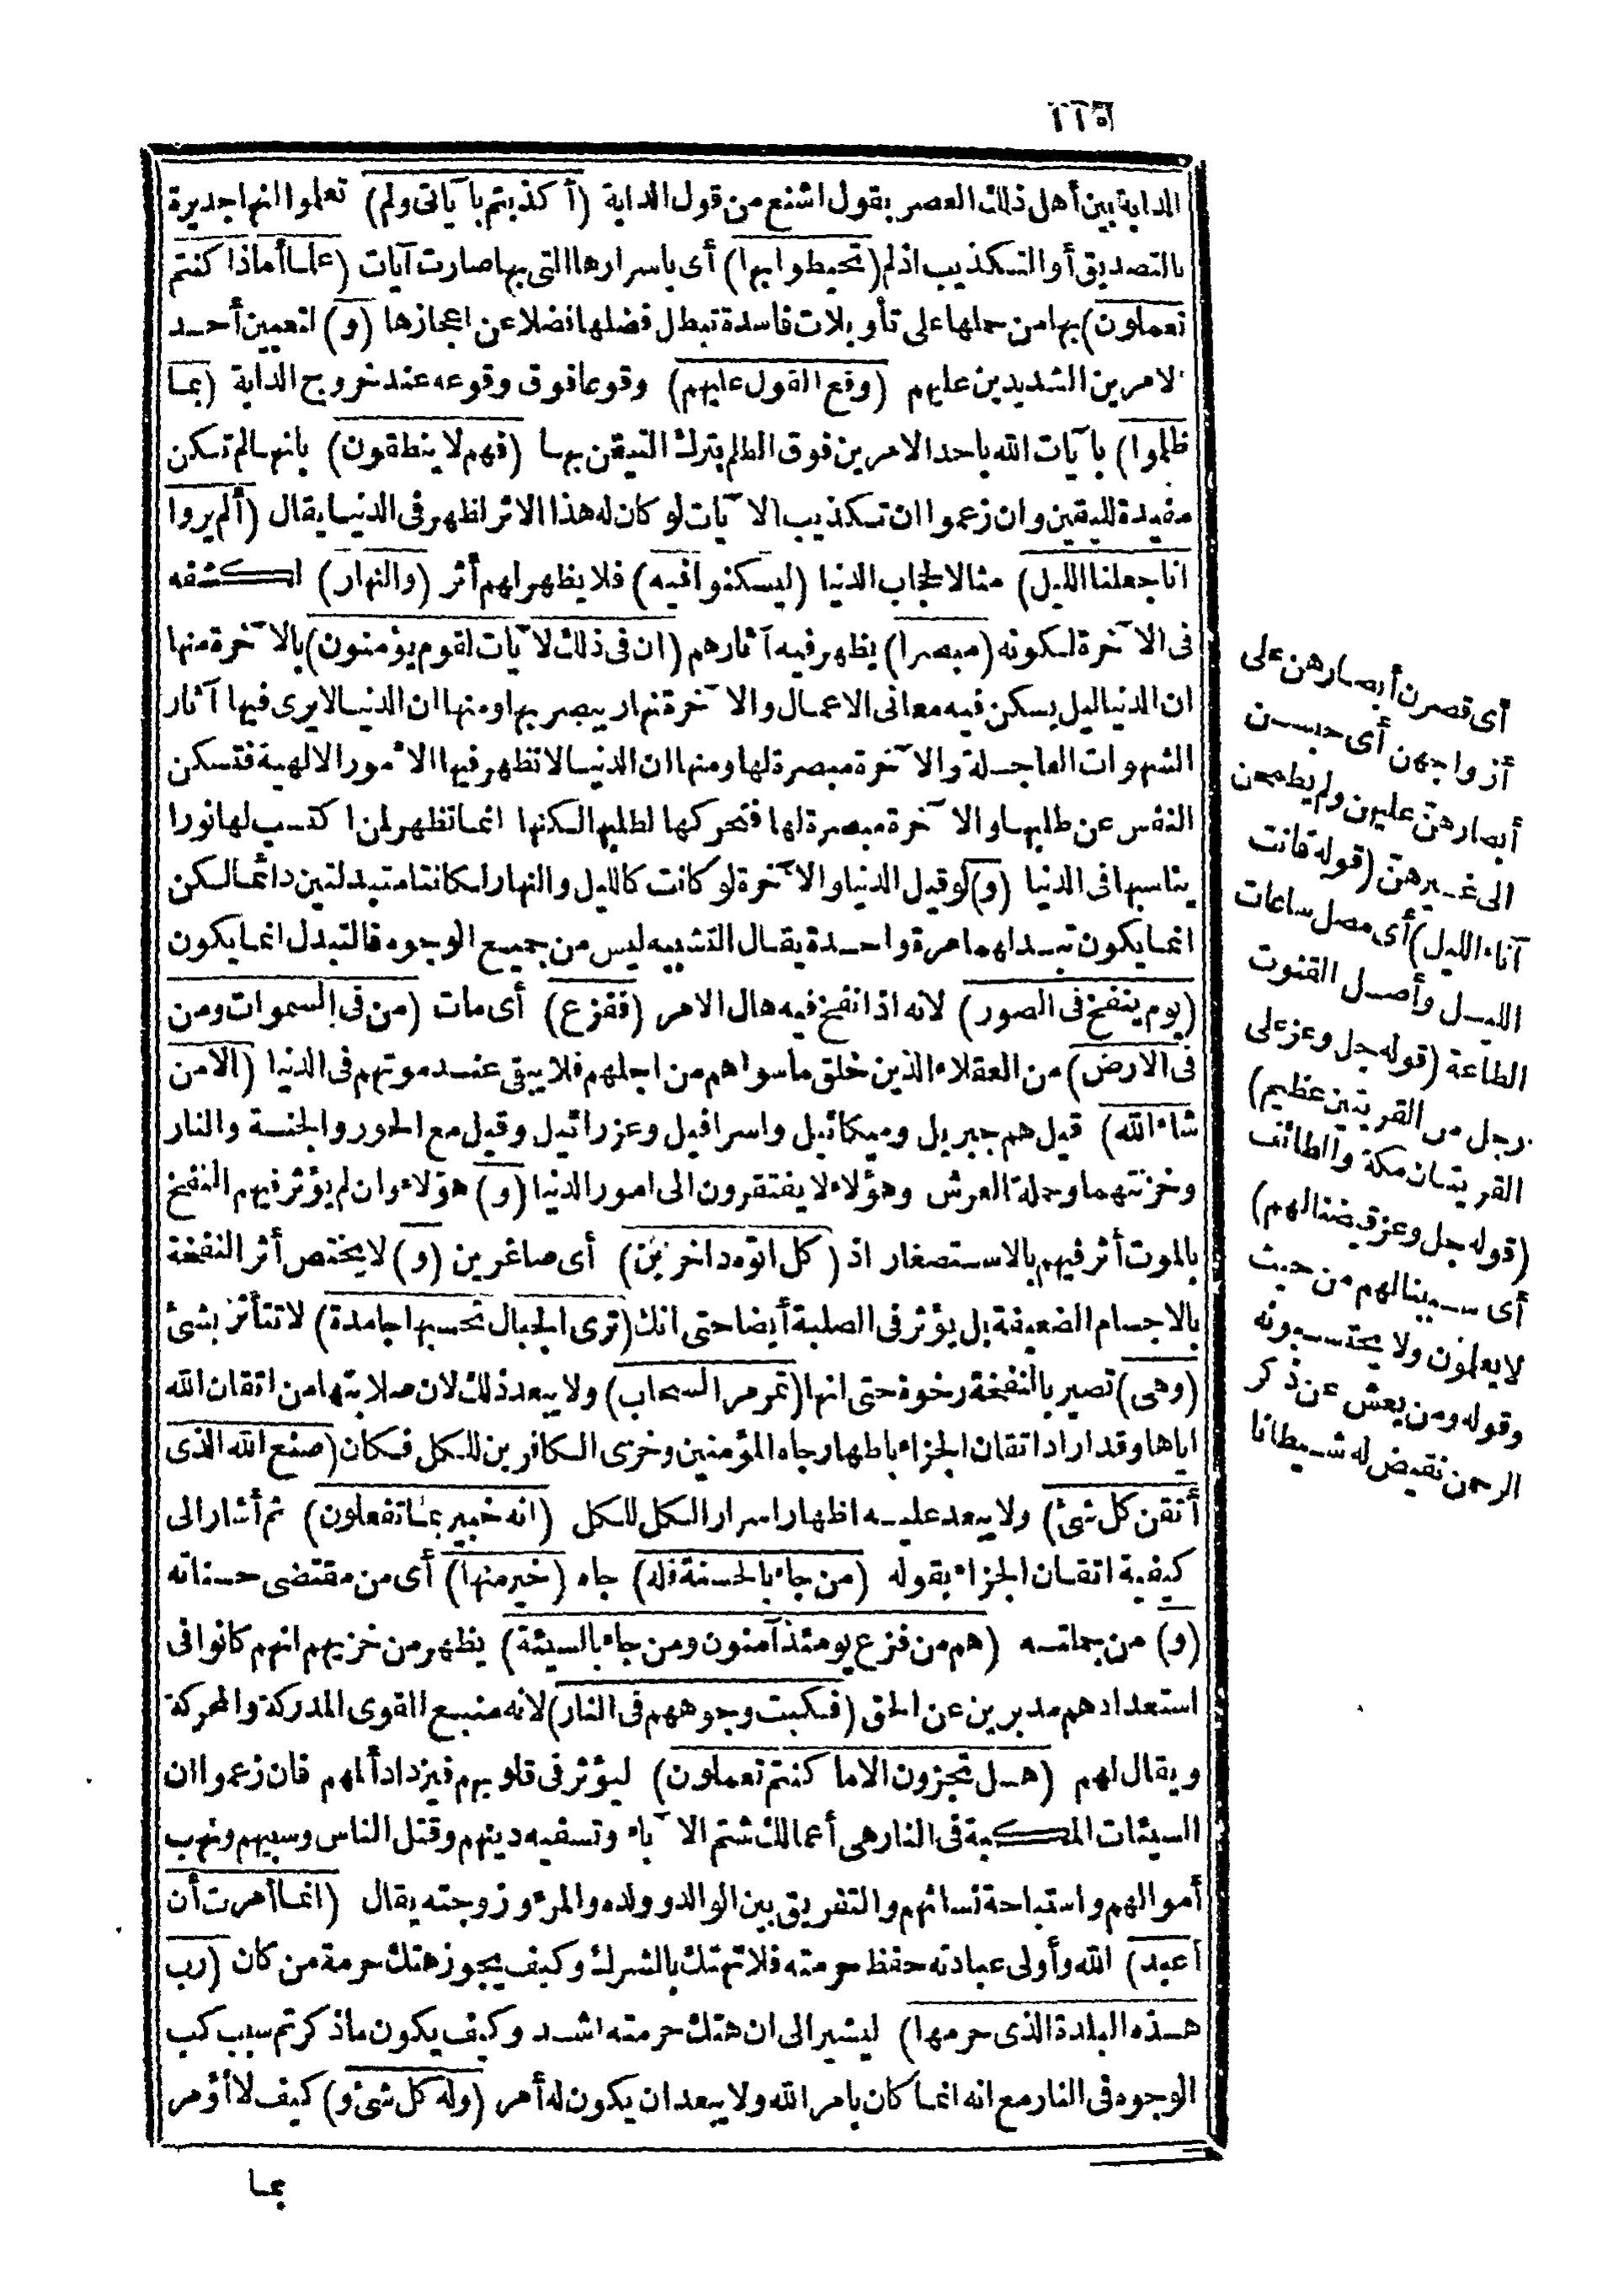 الدابة بين أهل ذلك العصر بقول اشنع من قول الدابة (أكذبتم بآياتى ولم) تعلموا انها جديرة
بالتصديق أو التكذيب اذ لم (تحيطوا بها) أى باسرارها التى بها صارت آيات (علما أماذا كنتم
تعملون) بها من حملها على تأويلات فاسدة تبطل فضلها فضلا عن اعجازها (و) لتعيين أحد
الامرين الشديدين عليهم (وقع القول عليهم) وقوعا فوق وقوعه عند خروج الدابة (بما
ظلموا) بآيات الله باحد الامرين فوق الظلم بترك التيقن بها (فهم لا ينطقون) بانها لم تكن
مفيدة لليقين وان زعموا ان تكذيب الآيات لو كان له هذا الاثر لظهر فى الدنيا يقال (ألم يروا
انا جعلنا الليل) مثالا لحجاب الدنيا (ليسكنوا فيه) فلا يظهر لهم أثر (والنهار) لكشفه
فى الآخرة لكونه (مبصرا) يظهر فيه آثارهم (ان فى ذلك لآيات لقوم يؤمنون) بالآخرة منها
ان الدنيا ليل يسكن فيه معانى الاعمال والآخرة نهار يبصر بها ومنها ان الدنيا لا يرى فيها آثار
الشهوات العاجلة والآخرة مبصرة لها ومنها ان الدنيا لا تظهر فيها الأمور الالهية فتسكن
النفس عن طلبها والآخرة مبصرة لها فتحركها لطلبها لكنها انما تظهر لمن اكتسب لها نورا
يناسبها فى الدنيا (و) لو قيل الدنيا والآخرة لو كانت كالليل والنهار لكانتا متبدلتين دائما لكن
انما يكون تبدلهما مرة واحدة يقال التشبيه ليس من جميع الوجوه فالتبدل انما يكون
(يوم ينفخ فى الصور) لانه اذا نفخ فيه هال الامر (ففزع) أى مات (من فى السموات ومن
فى الارض) من العقلاء الذين خلق ما سواهم من اجلهم فلا يبقى عند موتهم فى الدنيا (الا من
شاء الله) قيل هم جبريل وميكائيل واسرافيل وعزرائيل وقيل مع الحور والجنة والنار
وخزنتهما وحملة العرش وهؤلاء لا يفتقرون الى امور الدنيا (و) هؤلاء وان لم يؤثر فيهم النفخ
بالموت أثر فيهم بالاستصغار اذ (كل اتوه داخرين) أى صاغرين (و) لا يختص أثر النفخة
بالاجسام الضعيفة بل يؤثر فى الصلبة أيضا حتى انك (ترى الجبال تحسبها جامدة) لا تتأثر بشئ
(وهى) تصير بالنفخة رخوة حتى انها (تمر مر السحاب) ولا يبعد ذلك لان صلابتها من اتقان الله
اياها وقد اراد اتقان الجزاء باظهار جاه المؤمنين وخزى الكافرين للكل فكان (صنع الله الذى
أتقن كل شئ) ولا يبعد عليه اظهار اسرار الكل للكل (انه خبير بما تفعلون) ثم أشار الى
كيفية اتقان الجزاء بقوله (من جاء بالحسنة فله) جاه (خير منها) أى من مقتضى حسناته
(و) من جملته (هم من فزع يومئذ آمنون ومن جاء بالسيئة) يظهر من خزيهم انهم كانوا فى
استعدادهم مدبرين عن الحق (فكبت وجوههم فى النار) لانه منبع القوى المدركة والمحركة
ويقال لهم (هل تجزون الا ما كنتم تعملون) ليؤثر فى قلوبهم فيزداد ألمهم فان زعموا ان
السيئات المكبة فى النار هى أعمالك شتم الآباء وتسفيه دينهم وقتل الناس وسبيهم ونهب
أموالهم واستباحة نسائهم والتفريق بين الوالد وولده والمرء وزوجته يقال (انما أمرت أن
أعبد) الله وأولى عبادته حفظ حرمته فلا تهتك بالشرك وكيف يجوز هتك حرمة من كان (رب
هذه البلدة الذى حرمها) ليشير الى ان هتك حرمته اشد وكيف يكون ما ذكرتم سبب كب
الوجوه فى النار مع انه انما كان بامر الله ولا يبعد ان يكون له أمر (وله كل شئ و) كيف لا أومر
بما
أى قصرن أبصارهن على
أزواجهن أى حبسن
أبصارهن عليهن ولم يطمحن
الى غيرهن (قوله قانت
آناء الليل) أى مصل ساعات
الليل وأصل القنوت
الطاعة (قوله جل وعز على
رجل من القريتين عظيم)
القريتان مكة والطائف
(قوله جل وعز قيضنا لهم)
أى سببنا لهم من حيث
لا يعلمون ولا يحتسبونه
وقوله ومن يعش عن ذكر
الرحمن نقيض له شيطانا